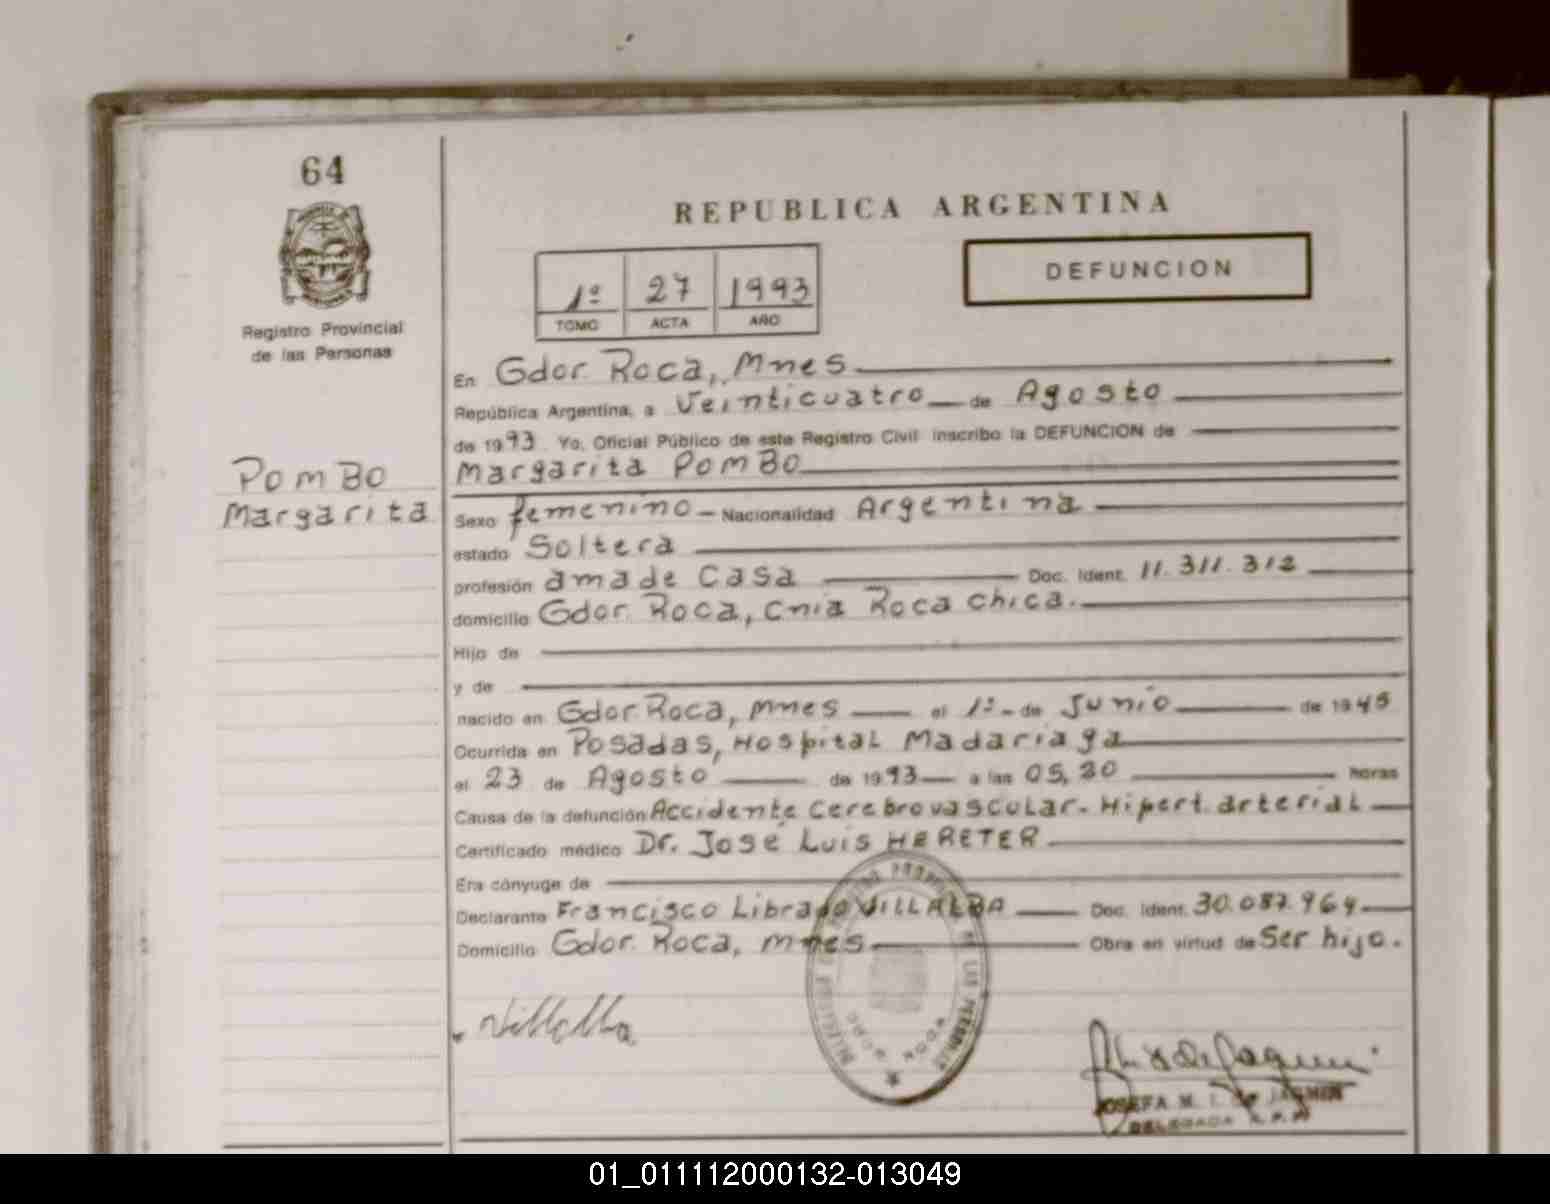 64
REPUBLICA ARGENTINA
1º 27 1993
TOMO ACTA AÑO
DEFUNCION
Registro Provincial
de las Personas
POMBO
Margarita
En Gdor. Roca, Mnes
República Argentina, a Veinticuatro de Agosto
de 1993 Yo, Oficial Público de este Registro Civil inscribo la DEFUNCION de
Margarita POMBO
Sexo femenino Nacionalidad Argentina
estado Soltera
profesión ama de Casa Doc. Ident. 11.311.312
domicilio Gdor. Roca, Cnia Roca Chica.
Hijo de
y de
nacido en Gdor. Roca, Mnes el 1º de Junio de 1945
Ocurrida en Posadas, Hospital Madariaga
el 23 de Agosto de 1993 a las 05,30 horas
Causa de la defunción Accidente Cerebrovascular. Hipert. arterial
Certificado médico Dr. José Luis HERETER
Era cónyuge de
Declarante Francisco Librado VILLALBA Doc. Ident. 30.087.964
Domicilio Gdor. Roca, Mnes Obra en virtud de Ser hijo.
Villalba
JOSEFA M. I. de JAQMIN
DELEGADA R. P. P.
01_011112000132-013049